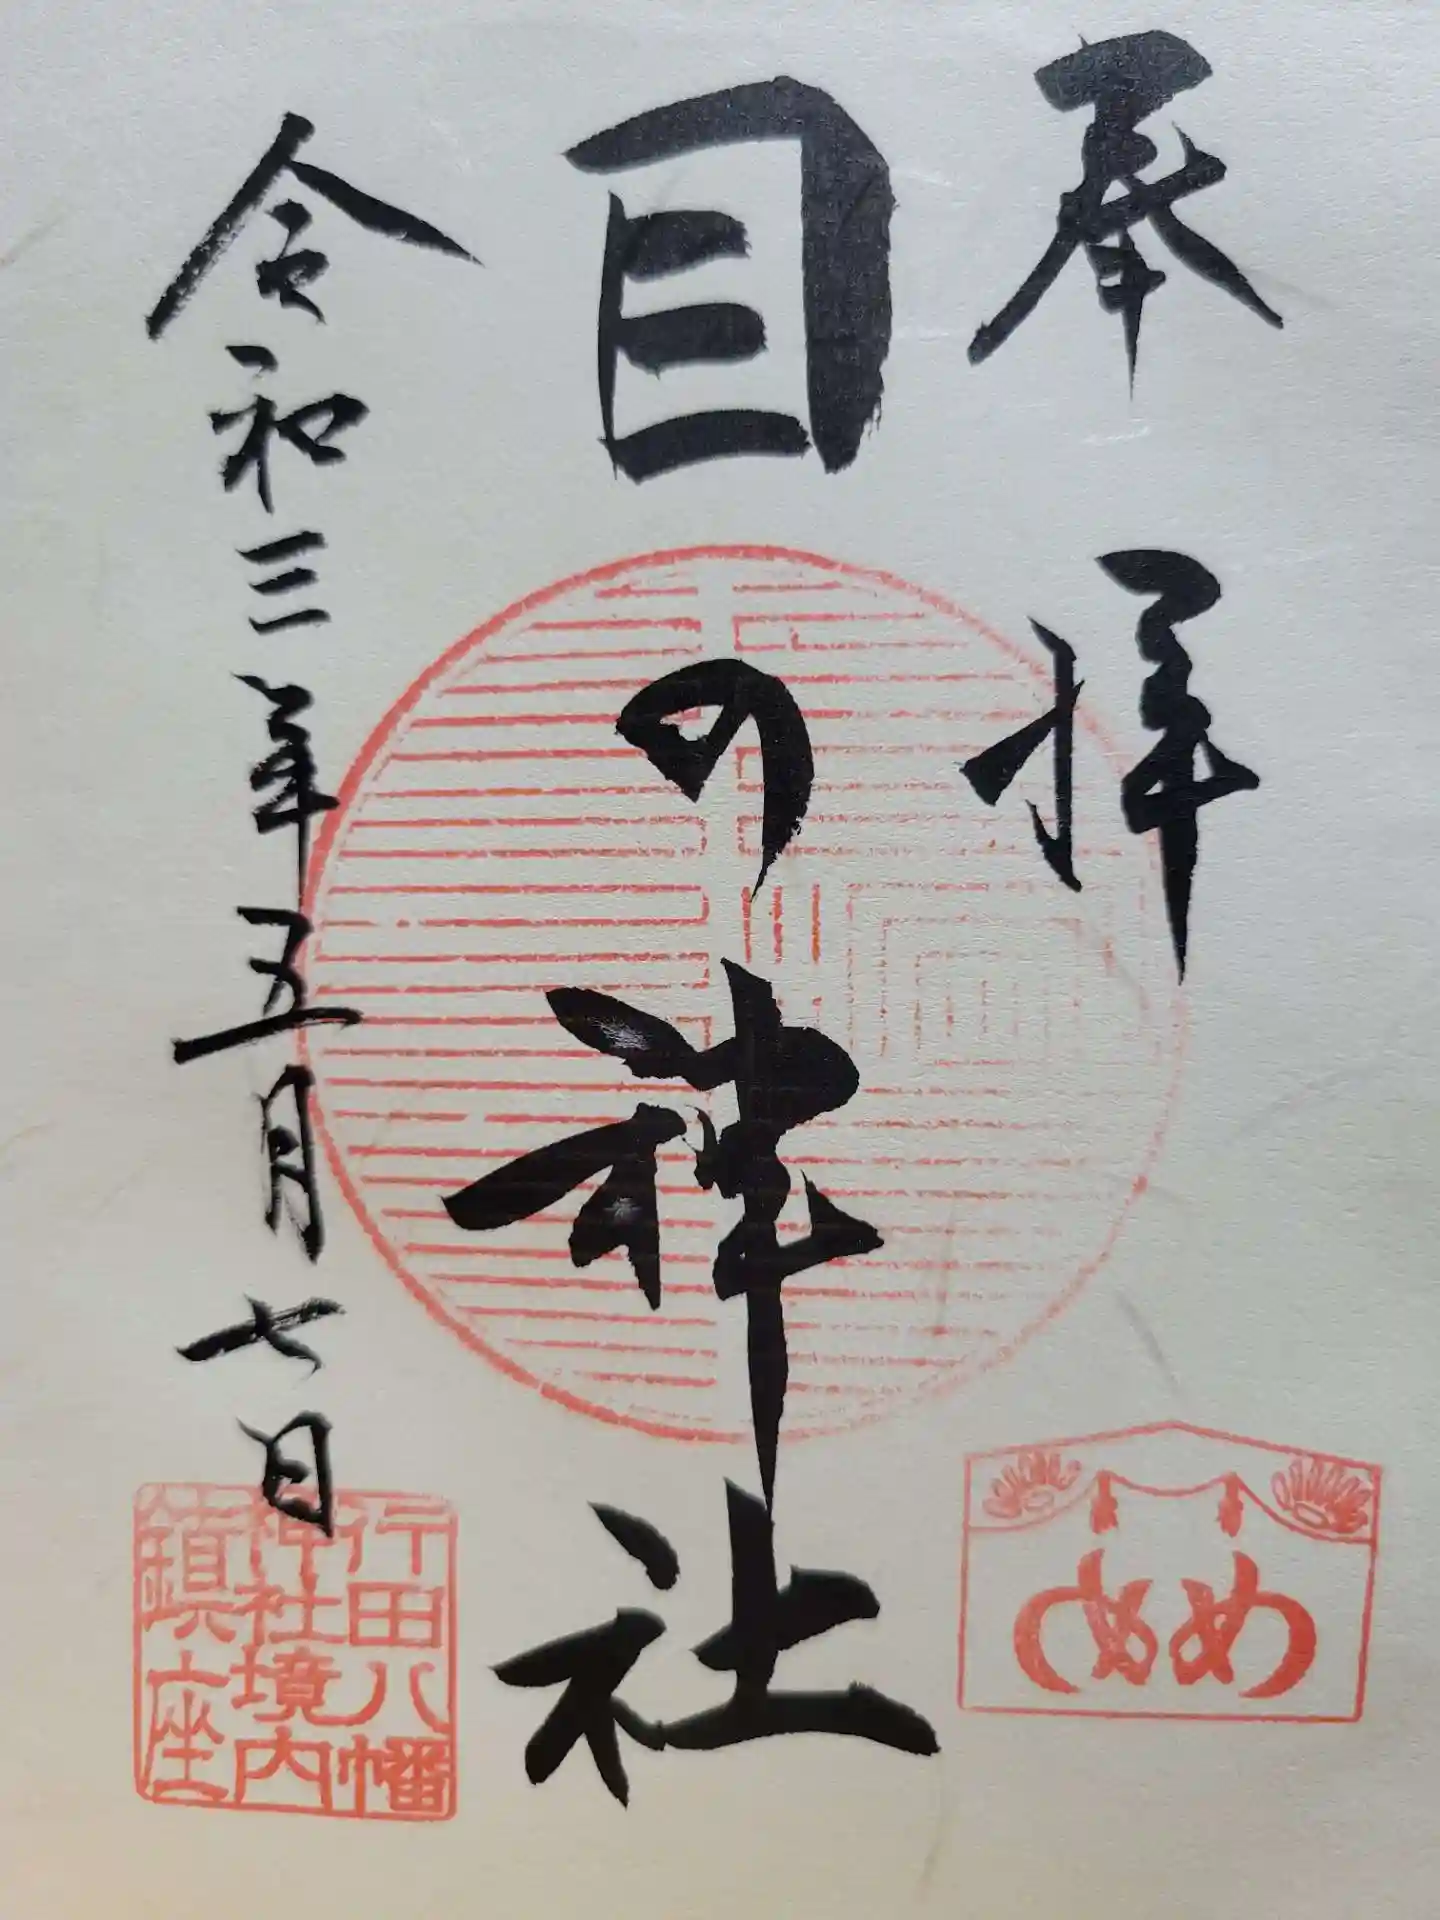 奉拝
目の神社
令和三年五月七日
め め
行田八幡
神社境内
鎮座